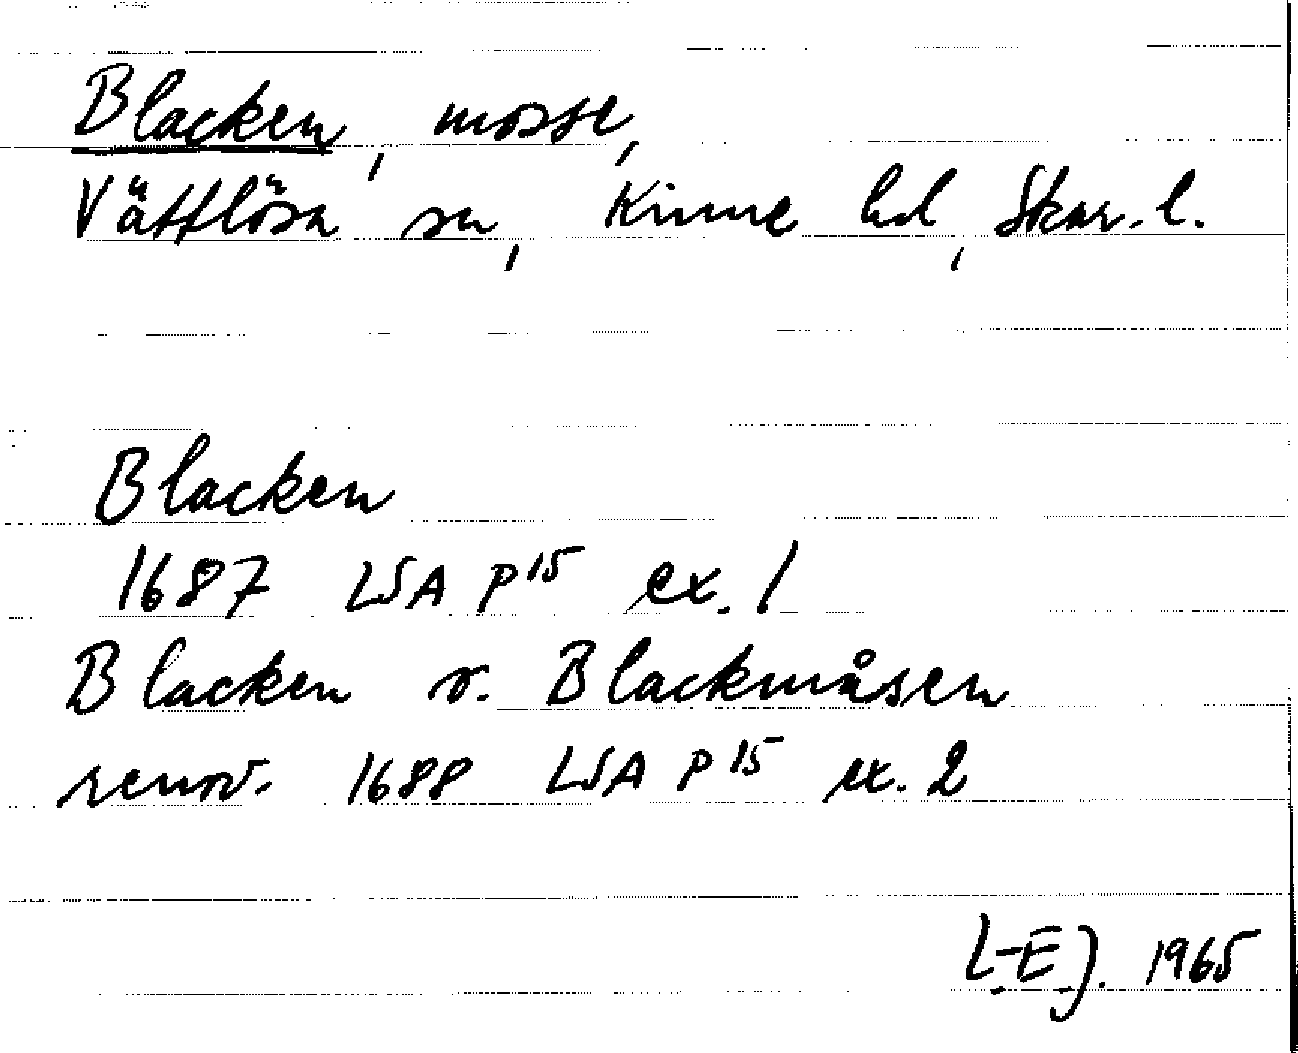 Blacken, mosse,
Vättlösa sn, Kinne hd, Skar. l.
Blacken
1687 LSA P 15 ex. 1
Blacken v. Blackmåsen
renov. 1688 LSA P 15 ex. 2
L-EJ. 1965